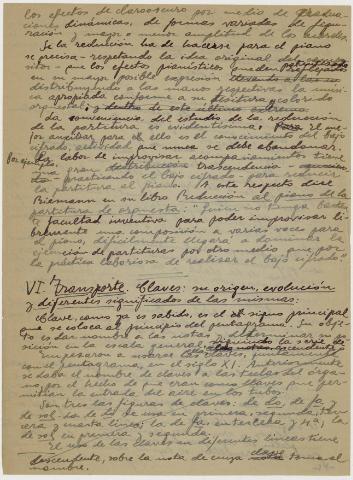 los efectos de claroscuro por medio de gradua-
ciones dinámicas, de formas variadas de figu-
ración y mayor o menor amplitud de los acordes.
Si la reducción ha de hacerse para el piano
se precisa - respetando la idea original del
- que los efectos pianísticos queden reflejados
en su mayor posible expresión
distribuyendo a las manos respectivas la misión
apropiada conforme a su tesitura y colorido
orquestal, y dentro de este último
La conveniencia del estudio de la reducción
de la partitura es evidentísima. El me-
jor auxiliar para ello es el conocimiento del bajo
cifrado, actividad que nunca se debe abandonar.
labor de improvisar acompañamientos tiene
una gran trascendencia
practicando el bajo cifrado - para reducir
la partitura al piano. A este respecto dice
Riemann en su libro Reducción al piano de la
partitura de orquesta: "Quien no tenga
facultad inventiva para poder improvisar li-
bremente una composición a varias voces para
el piano, difícilmente llegará a dominar la
ejecución de partituras por otro medio que por
la práctica laboriosa de realizar el bajo cifrado".
VI. Transporte. Claves: su origen, evolución
y diferentes significados de las mismas:
Clave, como ya es sabido, es el signo principal
que se coloca al principio del pentagrama. Su obje-
to es dar nombre a las notas y determinar su po-
sición en la escala general,
Empezaron a usarse las claves, juntamente
con el pentagrama, en el siglo XI. Anteriormente
se daba el nombre de claves a las teclas del órga-
no, por el hecho de que eran como llaves que per-
mitían la entrada del aire en los tubos.
Son tres las figuras de claves: de do, de fa y
de sol. La de do se usa en primera, segunda, ter-
cera y cuarta línea; la de fa, en tercera y 4ª; la
de sol en primera y segunda.
El uso de las claves en diferentes líneas tiene
descendente, sobre la nota de cuya clave toma el
nombre.